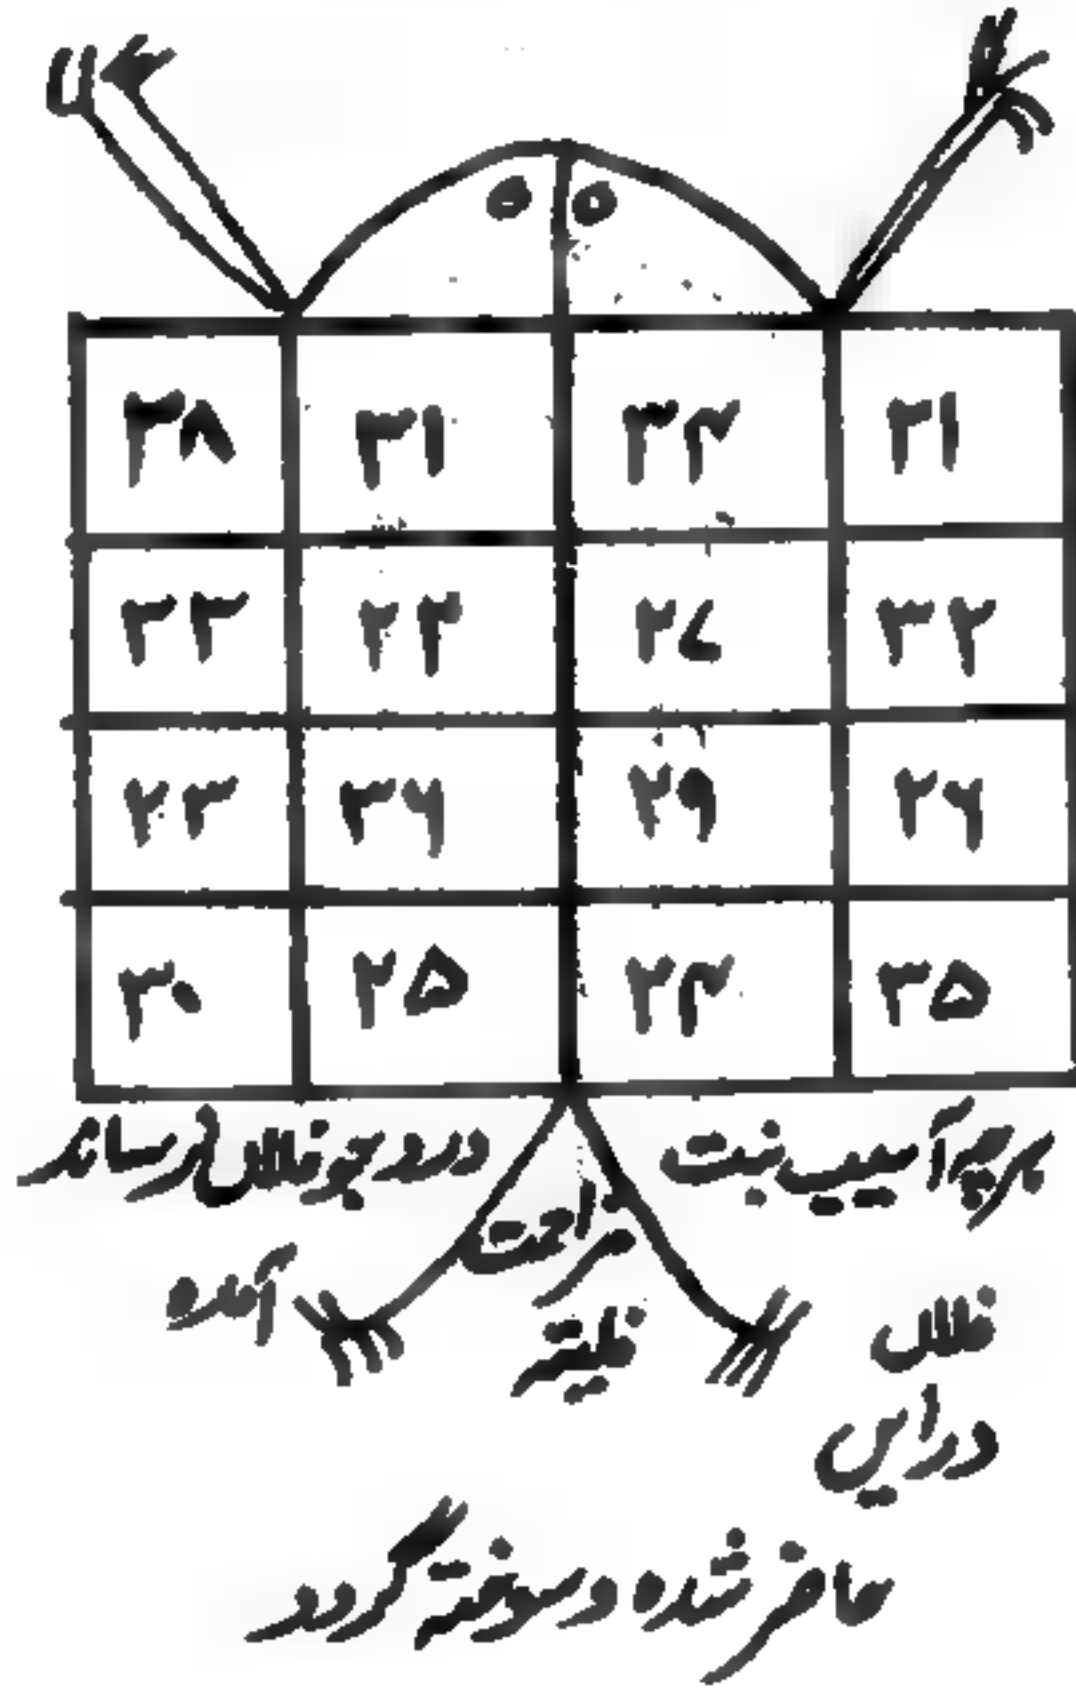 ۳۸ ۳۱ ۳۴ ۲۱
۳۳ ۲۲ ۲۷ ۳۲
۲۳ ۳۶ ۲۹ ۲۶
۳۰ ۲۵ ۲۴ ۳۵
هرچه آسیب نبت
درد جو فلاں رساند
مزاحمت
آمده
فلاں
فلیتہ
دراین
حاضر شده و سوخته گردد